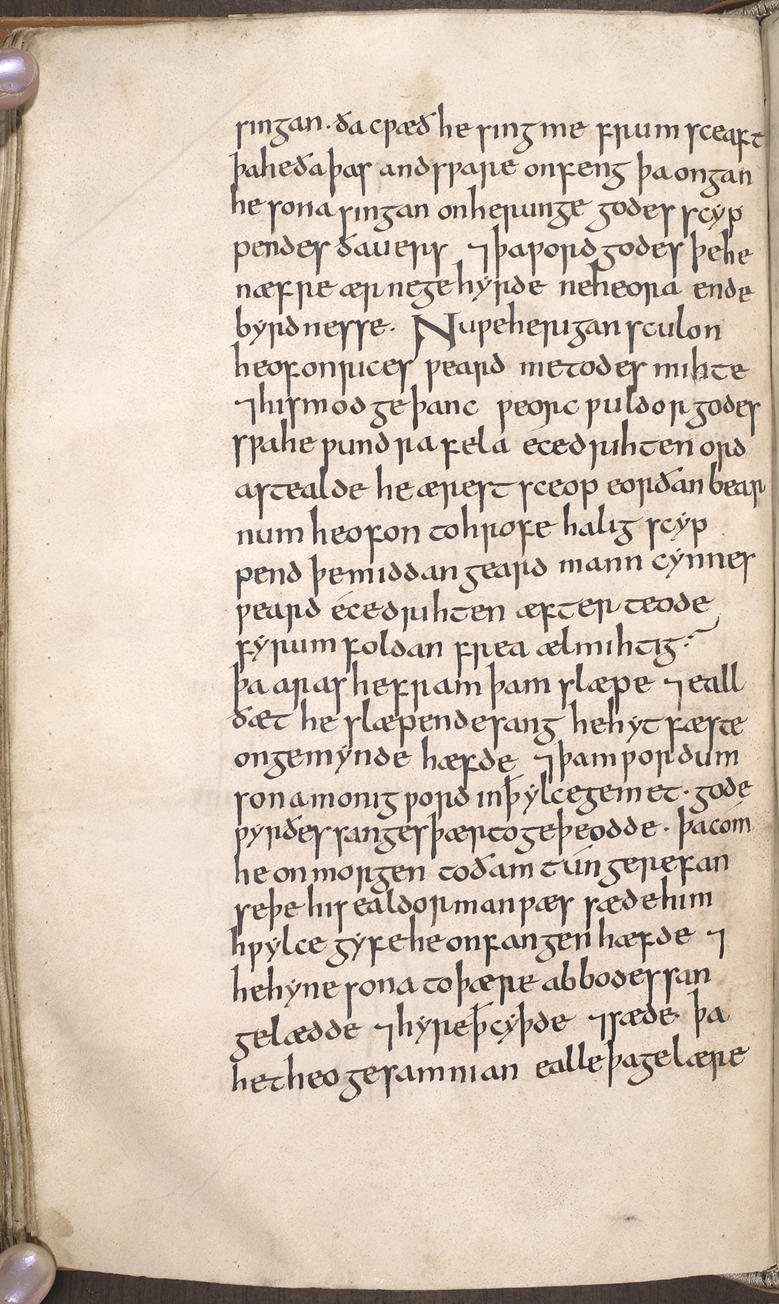 singan · ða cƿæð he sing me frumsceaft
þa he ða þas andsƿare onfeng þa ongan
he sona singan onherunge godes scyp
pendes ða uers ⁊ þa ƿord godes þe he
næfre ær ne gehyrde ne heora ende
byrdnesse · Nu ƿe herigan sculon
heofonrices ƿeard metodes mihte
⁊ his modgeþanc ƿeorc ƿuldorgodes
sƿa he ƿundra fela écedrihten ord
astealde he ærest sceop eorðan bear
num heofon to hrofe halig scyp
pend þe middangeard mann cynnes
ƿeard éce drihten æfter teode
fyrum foldan frea ælmihtig :~
þa aras he fram þam slæpe ⁊ eall
ðæt he slæpende sang he hyt fæste
on gemynde hæfde ⁊ þam ƿordum
sona monig ƿord in ꝥ ylce gemet · gode
ƿyrðes sanges þær to geþeodde · þa cóm
he on morgen to ðam túngerefan
se þe his ealdorman ƿæs sæde him
hƿylce gyfe he onfangen hæfde ⁊
he hyne sona to þære abbodessan
gelædde ⁊ hyre ꝥ cyþde ⁊ sæde þa
het heo gesamnian ealle þa gelære